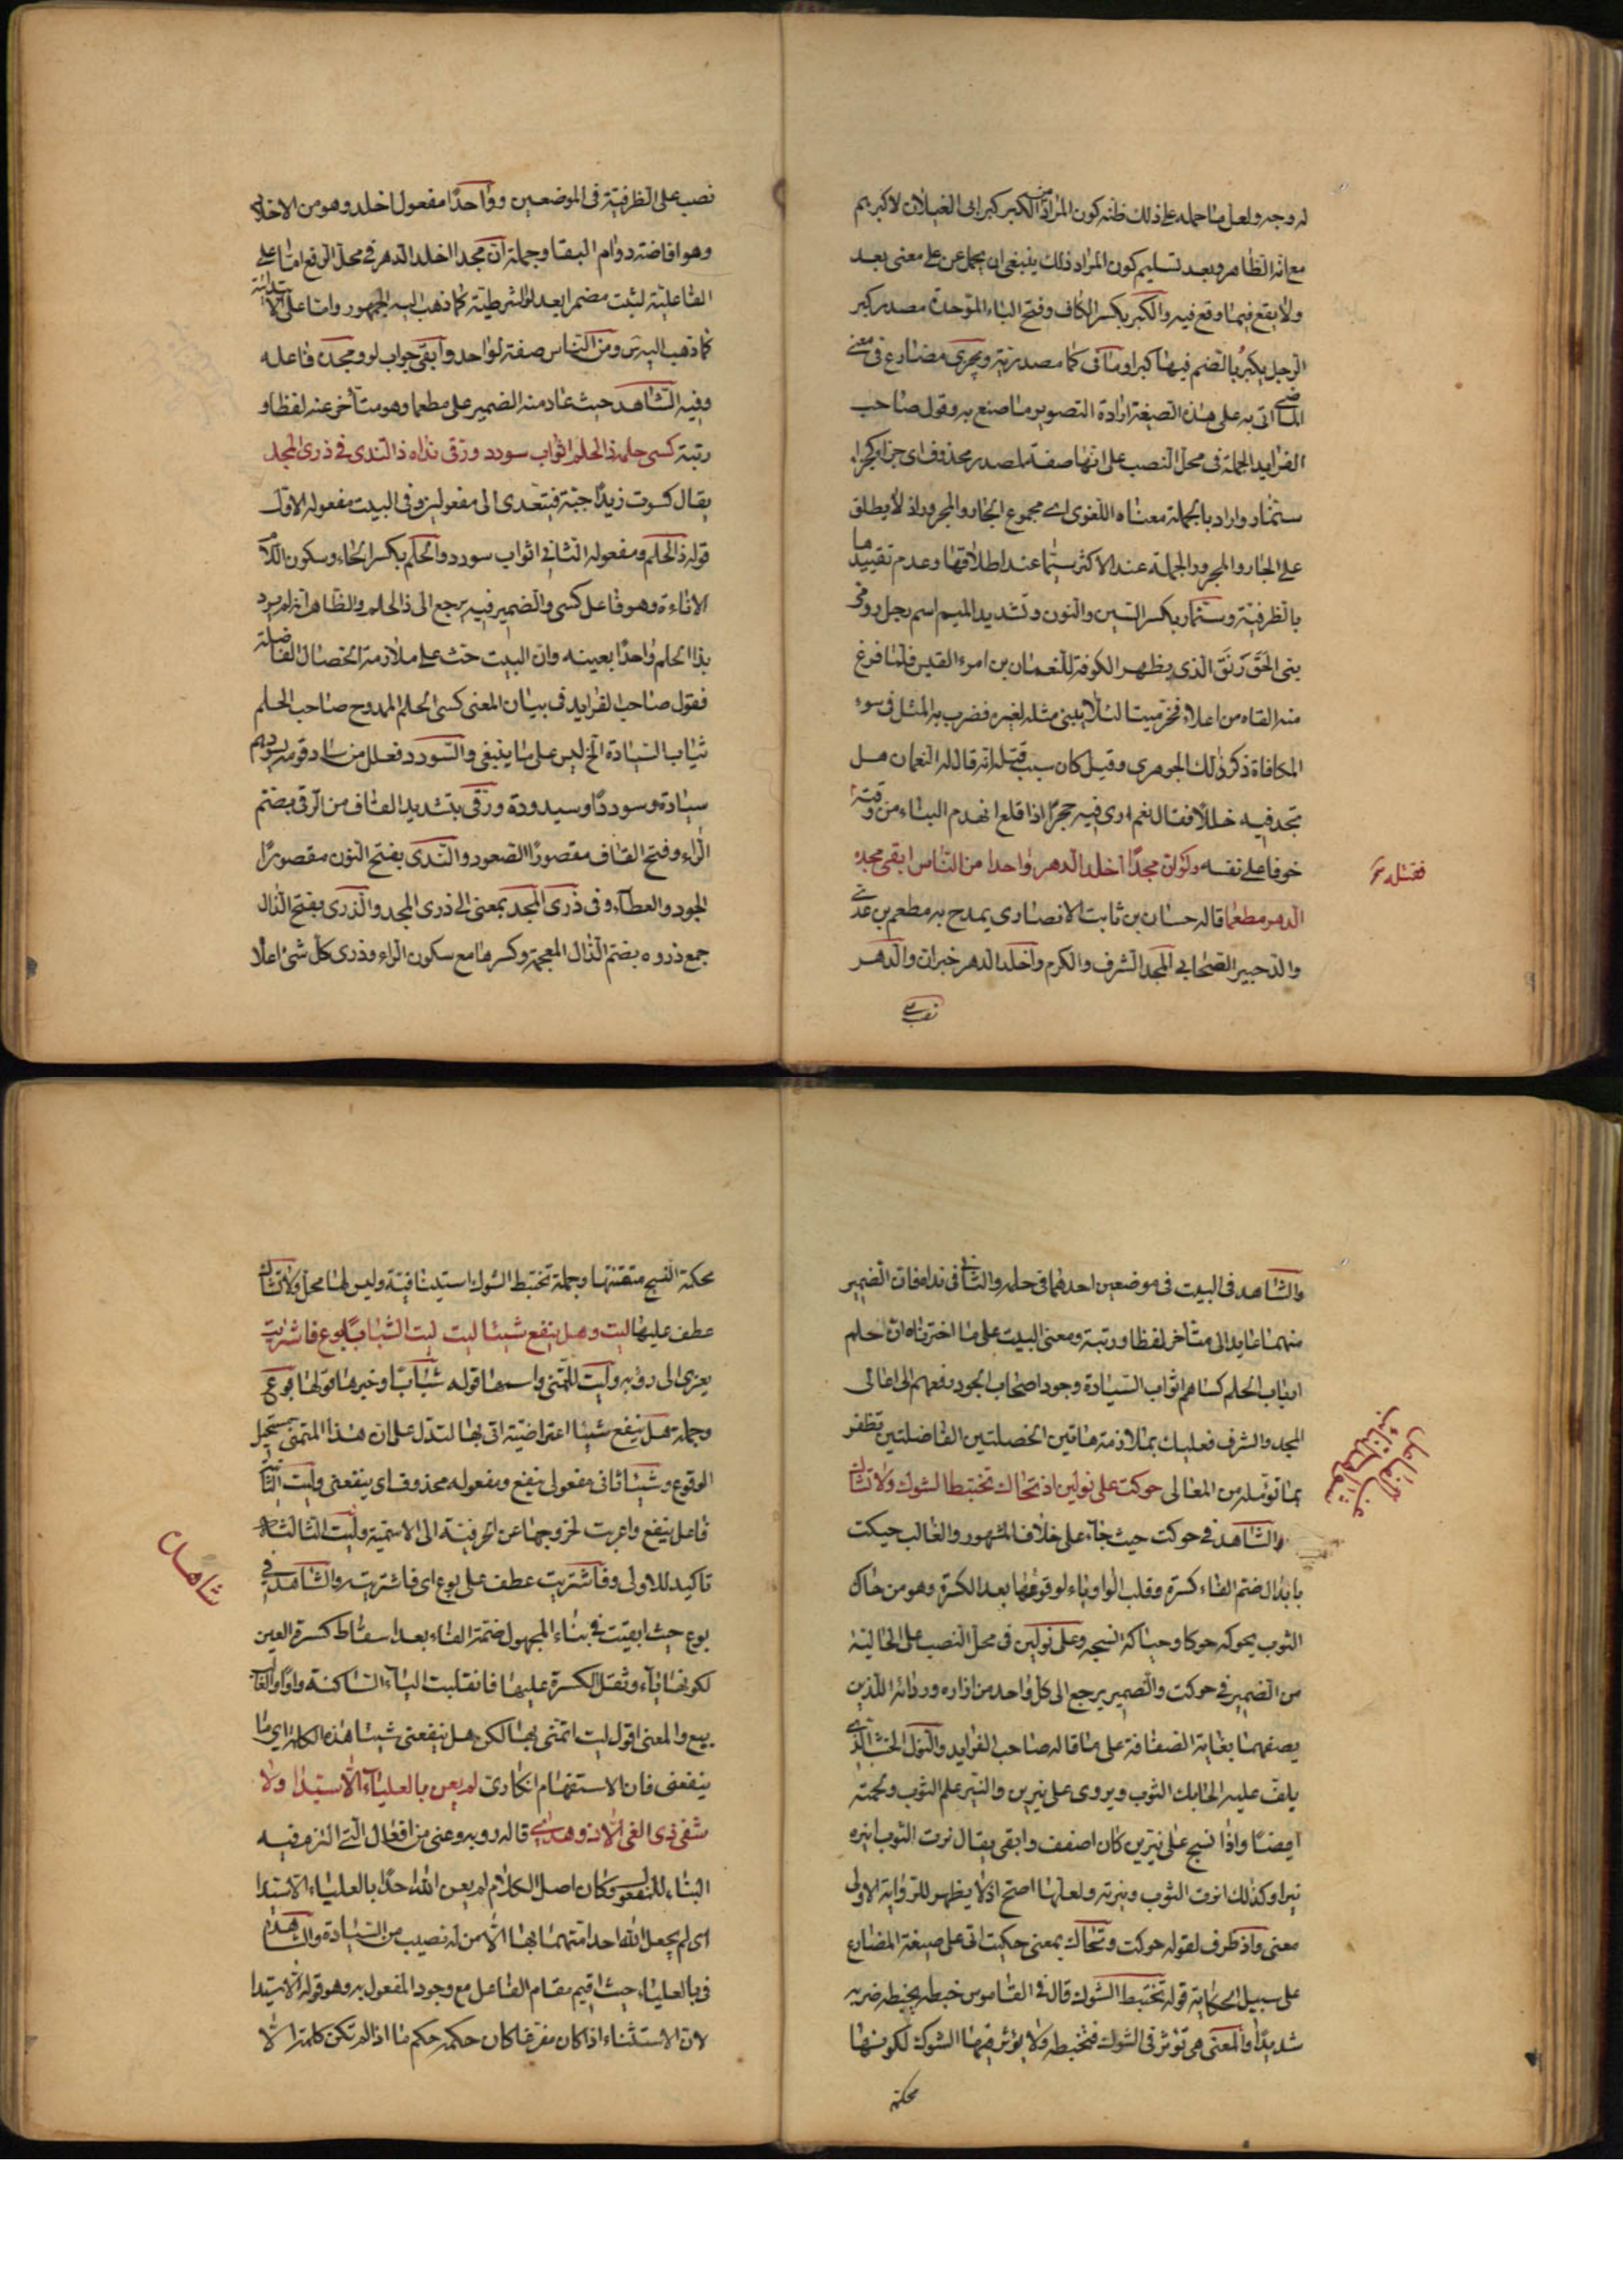 له وجه ولعل ما حمله على ذلك ظنه كون المراد من الكبر كبر ابى الغيلان لا كبرهم
مع انه الظاهر وبعد تسليم كون المراد ذلك ينبغى ان يحمل عن على معنى بعد
ولا يقع فيما وقع فيه والكبر بكسر الكاف وفتح الباء الموحدة مصدر كبر
الرجل يكبر بالضم فيهما كبرا وما فى كما مصدرية ويجزى مضارع فى معنى
الماضى اتى به على هذه الصيغة ارادة التصوير ما صنع به وقول صاحب
الفرايد الجملة فى محل النصب على انها صفة لمصدر محذوف اى جزاء كجزاء
سنمار واراد بالجملة معناه اللغوى اى مجموع الجار والمجرور اذ لا يطلق
على الجار والمجرور الجملة عند الاكثر سيما عند اطلاقها وعدم تقييدها
بالظرفية وسنمار بكسر السين والنون وتشديد الميم اسم رجل رومى
بنى الخورنق الذى بظهر الكوفة للنعمان بن امرء القيس فلما فرغ
منه القاه من اعلاه فخر ميتا لئلا يبنى مثله لغيره فضرب به المثل فى سوء
المكافاة ذكر ذلك الجوهرى وقيل كان سبب قتله انه قال له النعمان هل
تجد فيه خللا فقال نعم ارى فيه حجرا اذا قلع انهدم البناء من وقته
خوفا على نفسه ولو ان مجدا اخلد الدهر واحدا من الناس ابقى مجده
فقتله
الدهر مطعما قاله حسان بن ثابت الانصارى يمدح به مطعم بن عدى
والد جبير الصحابى المجد الشرف والكرم واخلد الدهر خبر ان والدهر
نصب على
نصب على الظرفية فى الموضعين وواحدا مفعول اخلد وهو من الاخلاد
وهو افاضة دوام البقا وجملة ان مجدا اخلد الدهر فى محل الرفع اما على
الفاعلية لثبت مضمرا بعد لو الشرطية كما ذهب اليه الجمهور واما على الابتدائية
كما ذهب اليه س ومن الناس صفة لواحد وابقى جواب لو ومجده فاعله
وفيه الشاهد حيث عاد منه الضمير على مطعما وهو متأخر عنه لفظا و
رتبة كسى حلمه ذا الحلم اثواب سودد ورقى نداه ذا الندى فى ذرى المجد
يقال كسوت زيدا جبة فيتعدى الى مفعولين وفى البيت مفعوله الاول
قوله ذا الحلم ومفعوله الثانى اثواب سودد والحلم بكسر الحاء وسكون اللام
الاناءة وهو فاعل كسى والضمير فيه يرجع الى ذا الحلم والظاهر انه لم يرد
بذا الحلم واحدا بعينه وان البيت حث على ملازمة الخصال الفاضلة
فقول صاحب الفرايد فى بيان المعنى كسى الحلم الممدوح صاحب الحلم
ثياب السيادة الخ ليس على ما ينبغى والسودد فعلل من ساد قومه يسودهم
سيادة وسوددا وسيدودة ورقى بتشديد القاف من الرقى بضم
الراء وفتح القاف مقصورا الصعود والندى بفتح النون مقصورا
الجود والعطاء وفى ذرى المجد بمعنى الى ذرى المجد والذرى بفتح الذال
جمع ذروه بضم الذال المعجمة وكسرها مع سكون الراء وذرى كل شئ اعلا
والشاهد فى البيت فى موضعين احدهما فى حلمه والثانى فى نداه فان الضمير
منهما عايد الى متأخر لفظا ورتبة ومعنى البيت على ما اخترناه ان حلم
ارباب الحلم كساهم اثواب السيادة وجود اصحاب الجود رفعهم الى اعالى
المجد والشرف فعليك بملازمة هاتين الخصلتين الفاضلتين تظفر
بما تؤمله من المعالى حوكت على نولين اذ تحاك تختبط الشوك ولا تشاك
شواهد النائب عن الفاعل
والشاهد فى حوكت حيث جاء على خلاف المشهور والغالب حيكت
بابدال ضم الفاء كسرة وقلب الواو ياء لوقوعها بعد الكسرة وهو من حاك
الثوب يحوكه حوكا وحياكة نسجه وعلى نولين فى محل النصب على الحالية
من الضمير فى حوكت والضمير يرجع الى كل واحد من ازاره وردائه اللذين
يصفهما بغاية الصفاقة على ما قاله صاحب الفرايد والنول الخشب الذى
يلف عليه الحايك الثوب ويروى على نيرين والنير علم الثوب ولحمته
ايضا واذا نسج على نيرين كان اصفق وابقى يقال نرت الثوب انيره
نيرا وكذلك انرت الثوب ونيرته ولعلها اصح اذ لا يظهر للرواية الاولى
معنى واذ ظرف لقوله حوكت وتحاك بمعنى حيكت اتى على صيغة المضارع
على سبيل الحكاية قوله تختبط الشوك قال فى القاموس خبطه يخبطه ضربه
شديدا والمعنى هى تؤثر فى الشوك فتخبطه ولا يؤثر فيها الشوكة لكونها
محكمة
محكمة النسج متقنتها وجملة تختبط الشوك استينافية وليس لها محل ولا تشاك
عطف عليها ليت وهل ينفع شيئا ليت ليت الشبابا بوع فاشتريت
يعزى الى رؤبه وليت للتمنى واسمها قوله شبابا وخبرها قولها بوع
وجملة هل ينفع شيئا اعتراضية اتى بها لتدل على ان هذا المتمنى مستحيل
الوقوع وشيئا ثانى مفعولى ينفع ومفعوله محذوف اى ينفعنى وليت الثانى
فاعل ينفع واعربت لخروجها عن الحرفية الى الاسمية وليت الثالثة
تاكيد للاولى وفاشتريت عطف على بوع اى فاشتريته والشاهد فى
شاهد
بوع حيث ابقيت فى بناء المجهول ضمة الفاء بعد اسقاط كسرة العين
لكونها ياء وثقل الكسرة عليها فانقلبت الياء الساكنة واوا والغالب
بيع والمعنى اقول ليت اتمنى بها لكن هل ينفعنى شيئا هذه الكلمة اى ما
ينفعنى فان الاستفهام انكارى لم يعن بالعلياء الا سيدا ولا
شفى ذى الغى الا ذو هدى قاله رؤبه وعنى من افعال التى التزم فيه
البناء للمفعول وكان اصل الكلام لم يعن الله احدا بالعلياء الا سيدا
اى لم يجعل الله احدا متهما بها الا من له نصيب من السيادة والشاهد
فى بالعلياء حيث اقيم مقام الفاعل مع وجود المفعول به وهو قوله الا سيدا
لان الاستثناء اذا كان مفرغا كان حكمه حكم ما اذا لم تكن كلمة الا